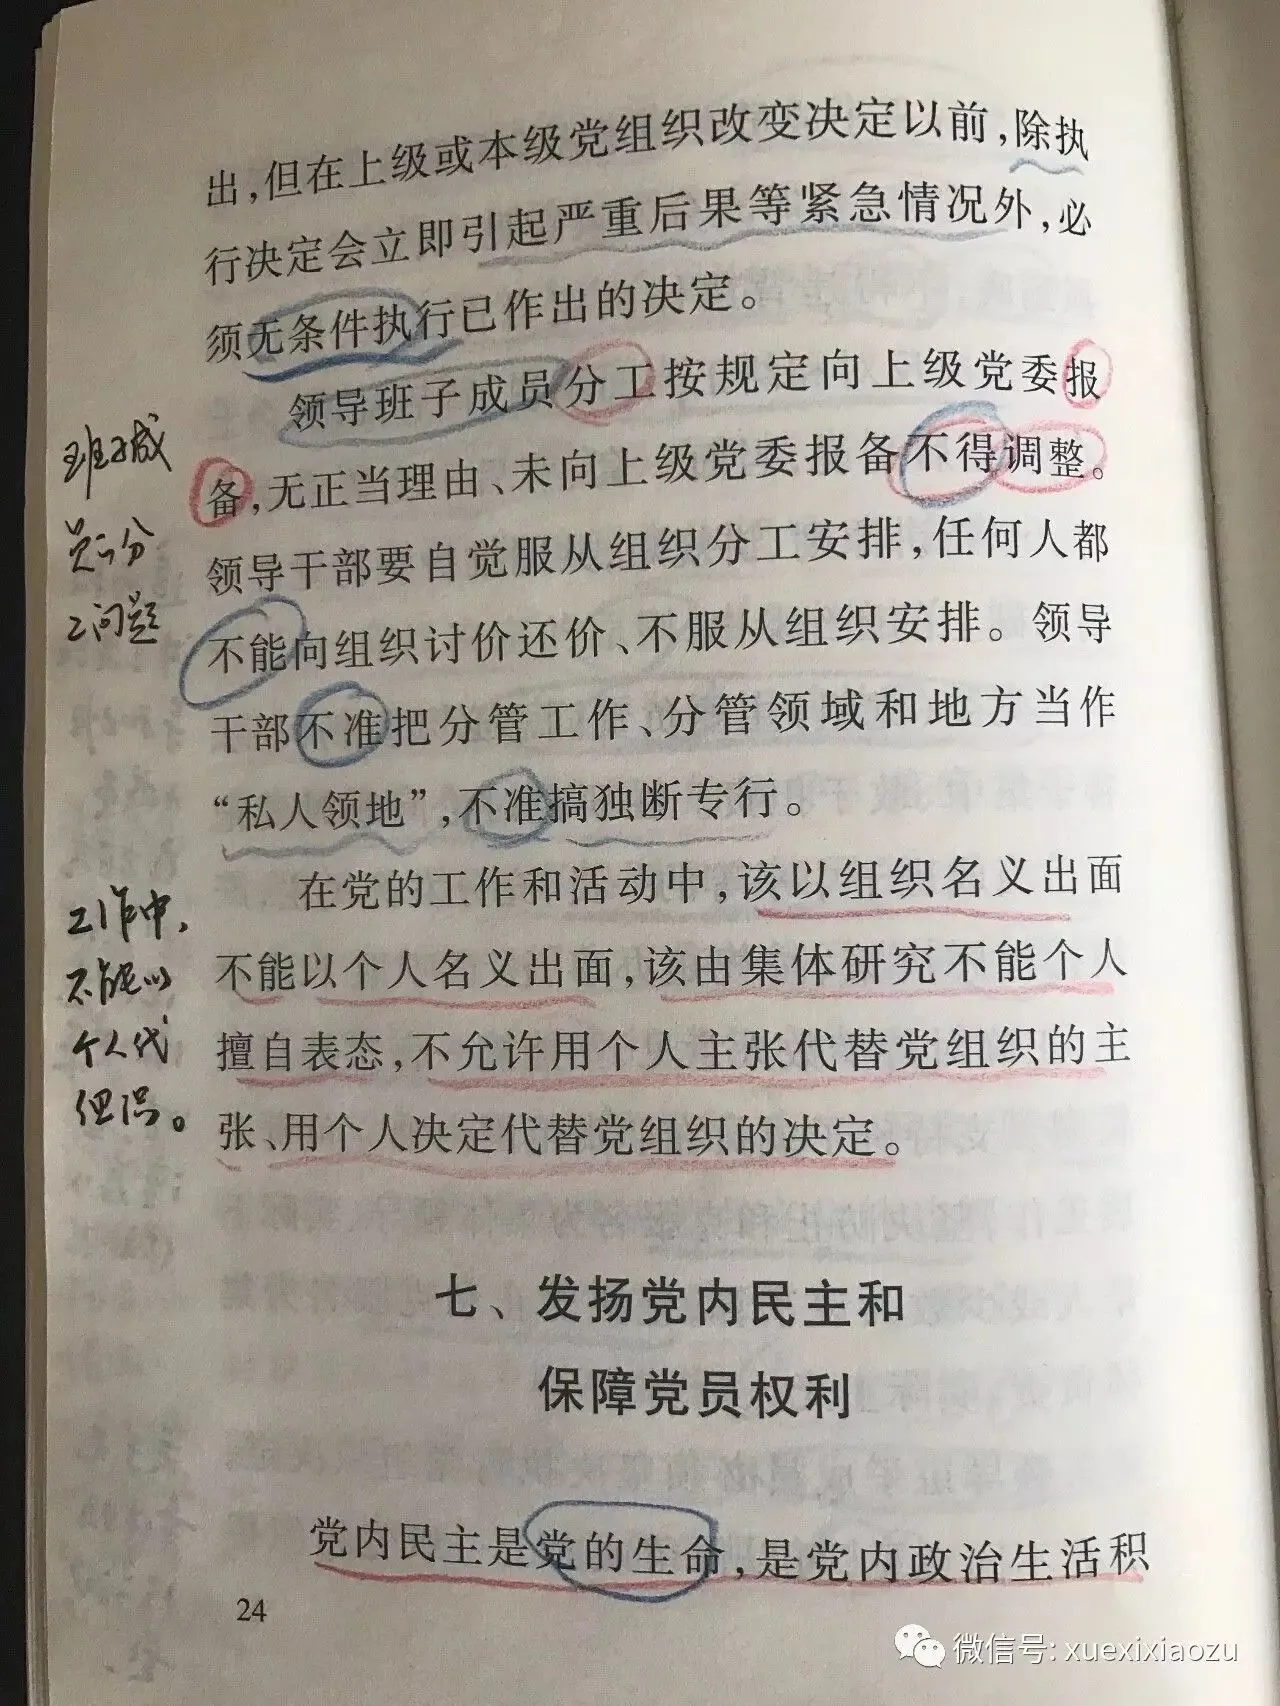 出,但在上级或本级党组织改变决定以前,除执
行决定会立即引起严重后果等紧急情况外,必
须无条件执行已作出的决定。
领导班子成员分工按规定向上级党委报
备,无正当理由、未向上级党委报备不得调整。
领导干部要自觉服从组织分工安排,任何人都
不能向组织讨价还价、不服从组织安排。领导
干部不准把分管工作、分管领域和地方当作
“私人领地”,不准搞独断专行。
在党的工作和活动中,该以组织名义出面
不能以个人名义出面,该由集体研究不能个人
擅自表态,不允许用个人主张代替党组织的主
张、用个人决定代替党组织的决定。
班子成
员的分
工问题
工作中,
不能以
个人代
组织。
七、发扬党内民主和
保障党员权利
党内民主是党的生命,是党内政治生活积
24
微信号: xuexixiaozu